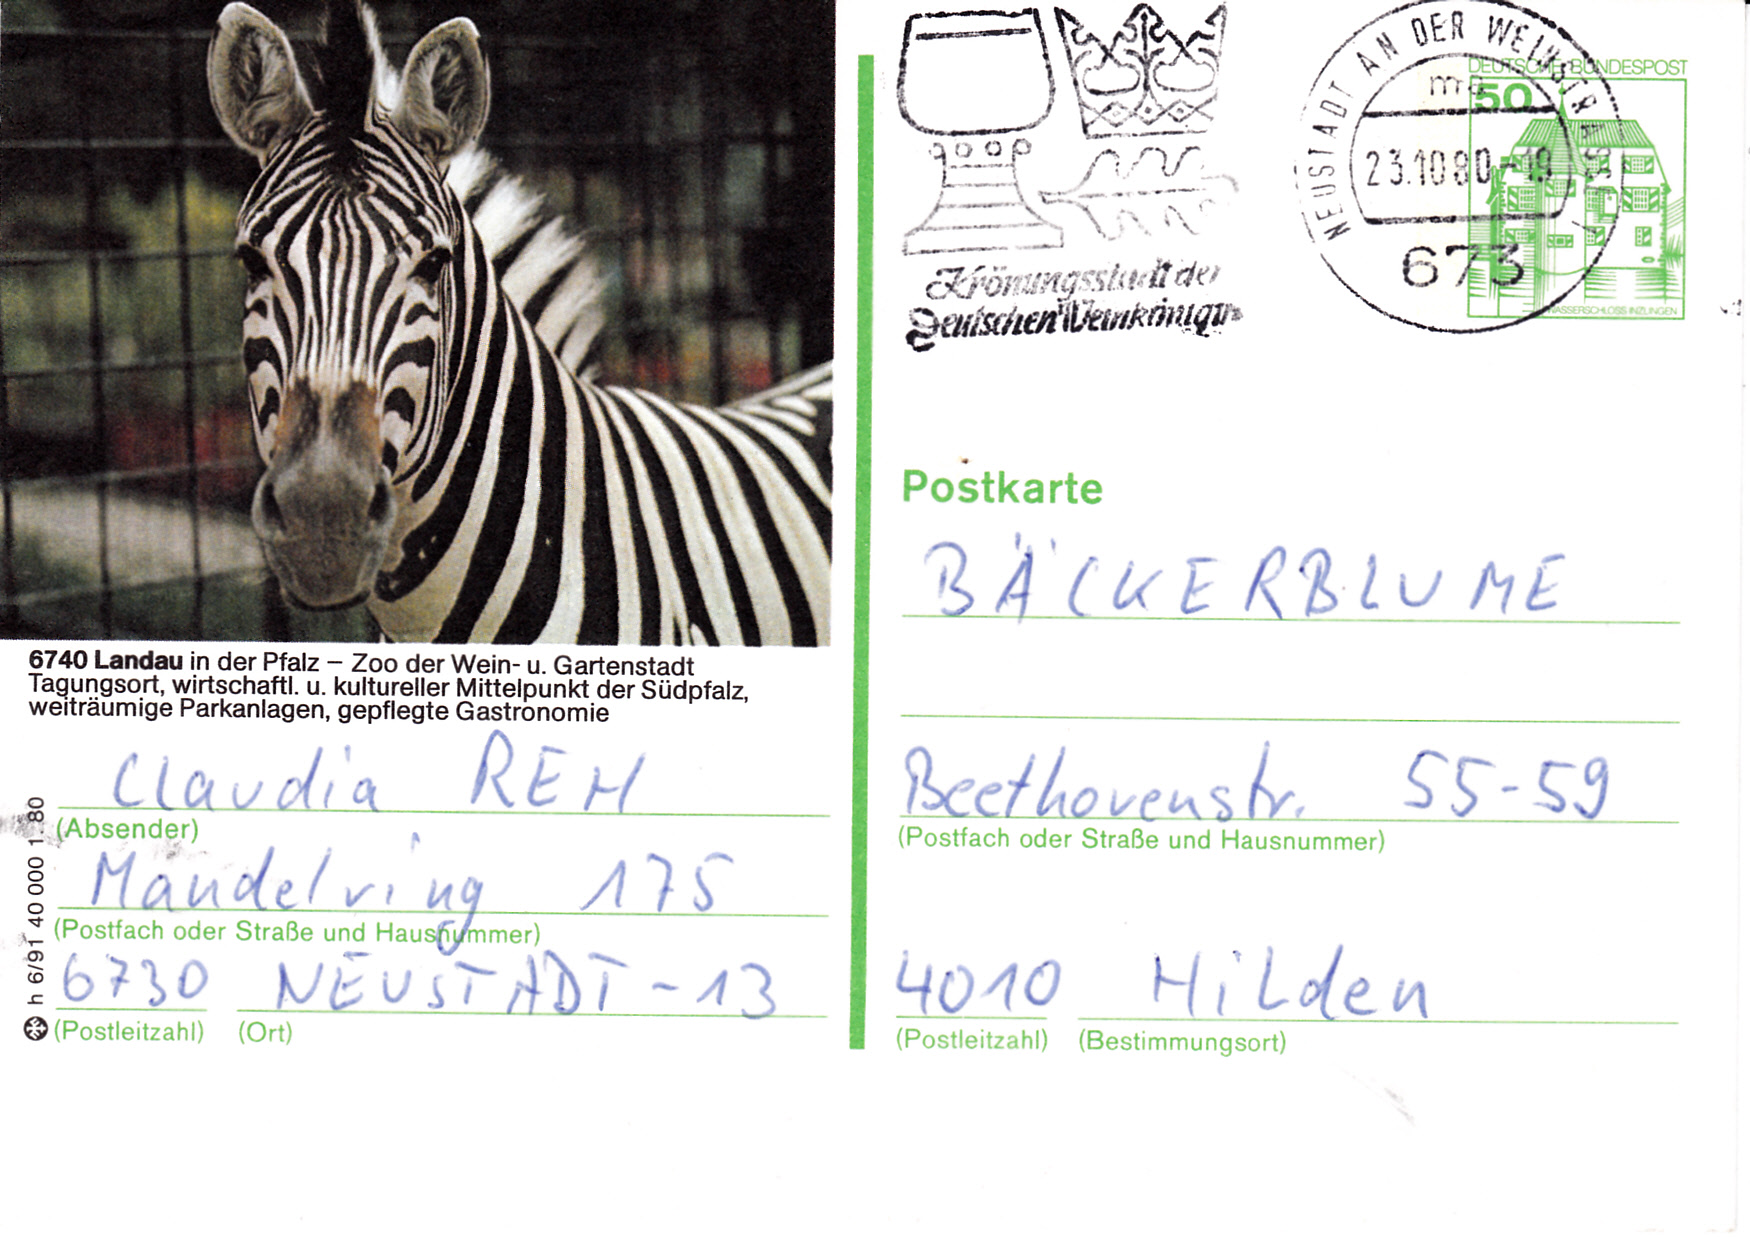 6740 Landau in der Pfalz – Zoo der Wein- u. Gartenstadt
Tagungsort, wirtschaftl. u. kultureller Mittelpunkt der Südpfalz,
weiträumige Parkanlagen, gepflegte Gastronomie
Claudia REH
(Absender)
Mandelring 175
(Postfach oder Straße und Hausnummer)
6730 NEUSTADT-13
(Postleitzahl) (Ort)
h 6/91 40 000 1.80
Krönungsstadt der
Deutschen Weinkönigin
NEUSTADT AN DER WEINSTR
ma
23.10.80-19
673
DEUTSCHE BUNDESPOST
50
WASSERSCHLOSS INZLINGEN
Postkarte
BÄCKERBLUME
Beethovenstr. 55-59
(Postfach oder Straße und Hausnummer)
4010 Hilden
(Postleitzahl) (Bestimmungsort)